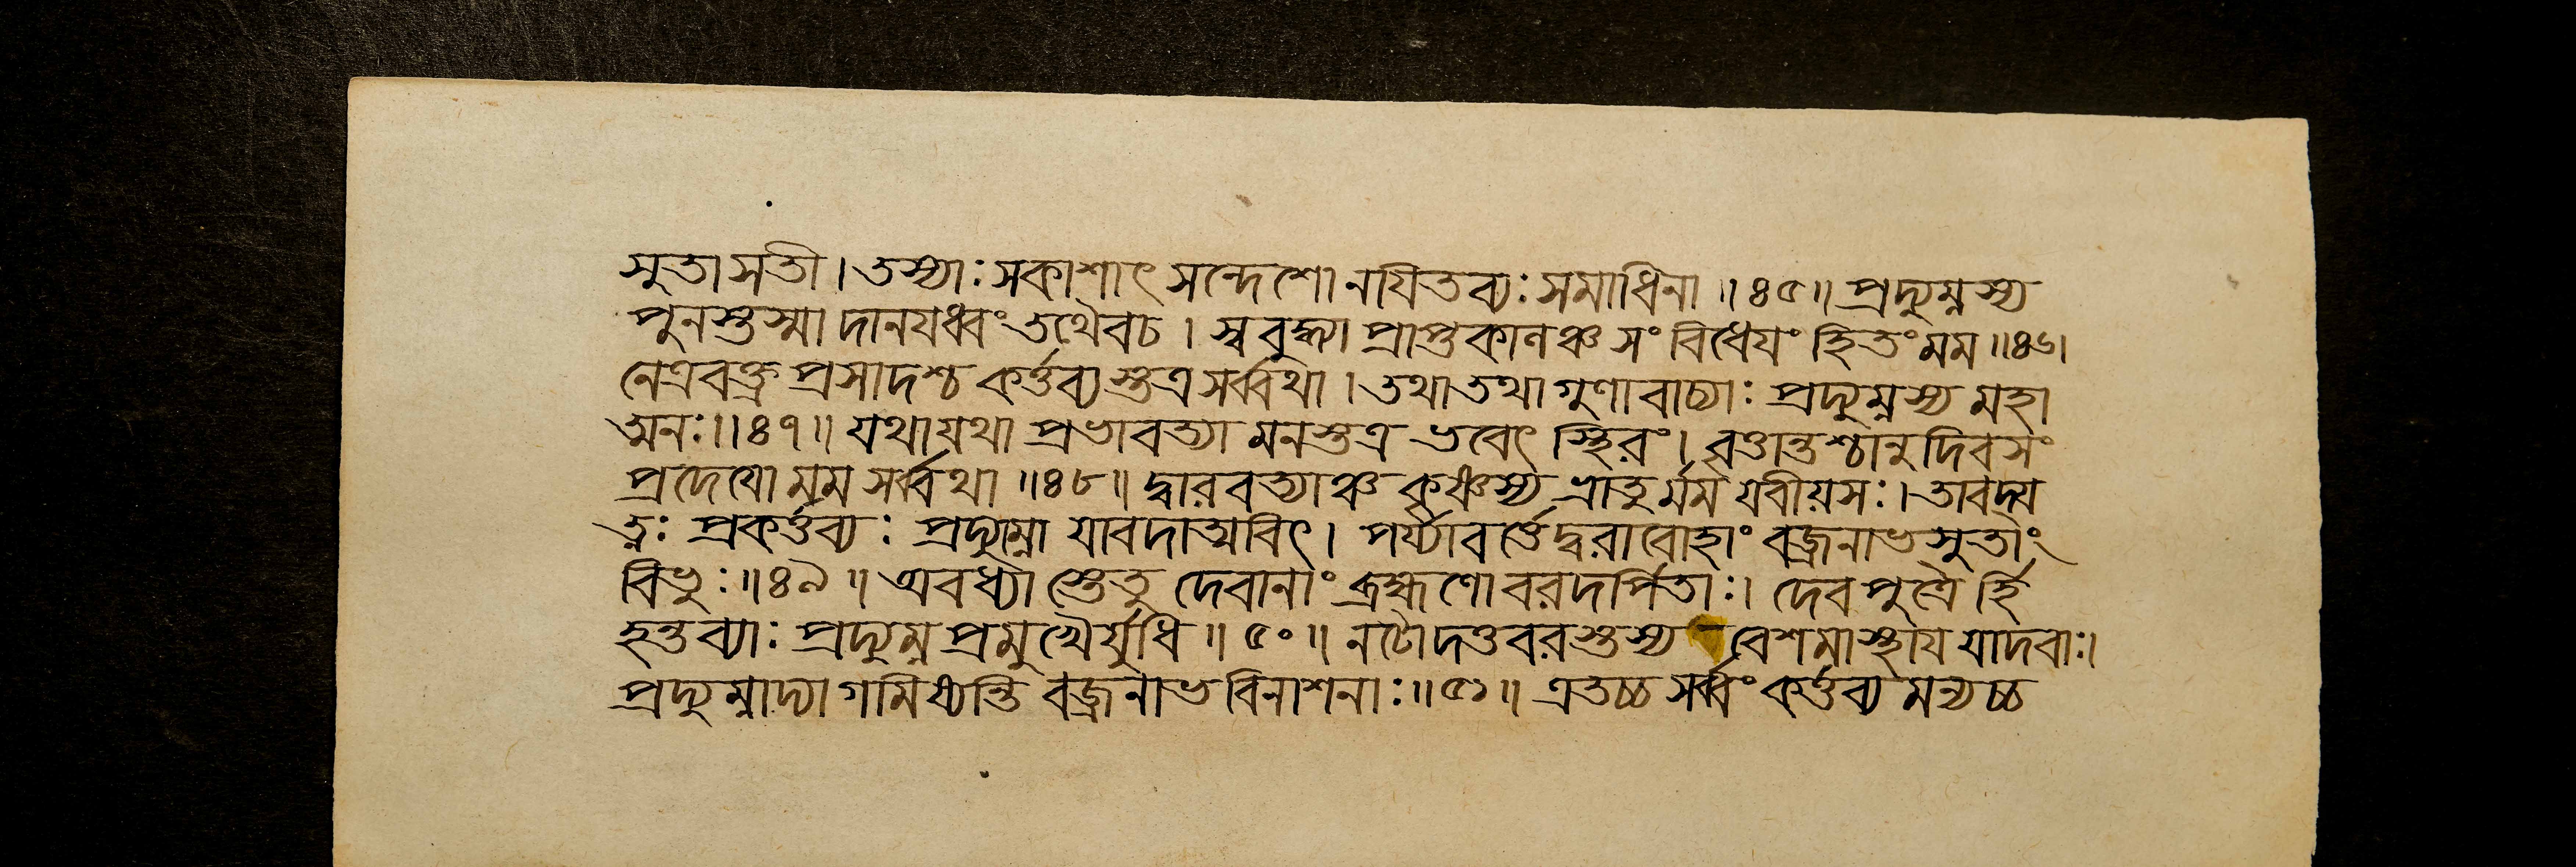 সুতা সতী । তস্যাঃ সকাশাৎ সন্দেশো নযিতব্যঃ সমাধিনা ॥ ৪৫ ॥ প্রদ্যুম্নস্য
পুনস্তস্মা দানযধ্বং তথৈবচ । স্ববুদ্ধ্যা প্রাপ্তকালঞ্চ সং বিধেযং হিতং মম ॥ ৪৬।
নেত্রবক্ত্র প্রসাদশ্চ কর্ত্তব্যস্তত্র সর্ব্বথা । তথা তথা গুণা বাচ্যাঃ প্রদ্যুম্নস্য মহা
ত্মনঃ ॥ ৪৭ ॥ যথা যথা প্রভাবত্যা মনস্তত্র ভবেৎ স্থিরং । বৃত্তান্তশ্চানুদিবসং
প্রদেযো মম সর্ব্বথা ॥ ৪৮ ॥ দ্বারবত্যাঞ্চ কৃষ্ণস্য ভ্রাতুর্ম্মম যবীয়সঃ । তাবদ্য
ত্নঃ প্রকর্ত্তব্যঃ প্রদ্যুম্নো যাবদাত্মবিৎ । পর্য্যাবর্ত্তেদ্বরারোহাং বজ্রনাভসুতাং
বিভুঃ ॥ ৪৯ ॥ অবধ্যা স্তেতু দেবানাং ব্রহ্মণো বরদর্পিতাঃ । দেবপুত্রৈ র্হি
হন্তব্যাঃ প্রদ্যুম্ন প্রমুখৈর্যুধি ॥ ৫০ ॥ নটো দত্তবরস্তস্য বেশমাস্থায যাদবাঃ ।
প্রদ্যুম্নাদ্যা গমিষ্যন্তি বজ্রনাভ বিনাশনাঃ ॥ ৫১ ॥ এতচ্চ সর্ব্বং কর্ত্তব্য মন্যচ্চ